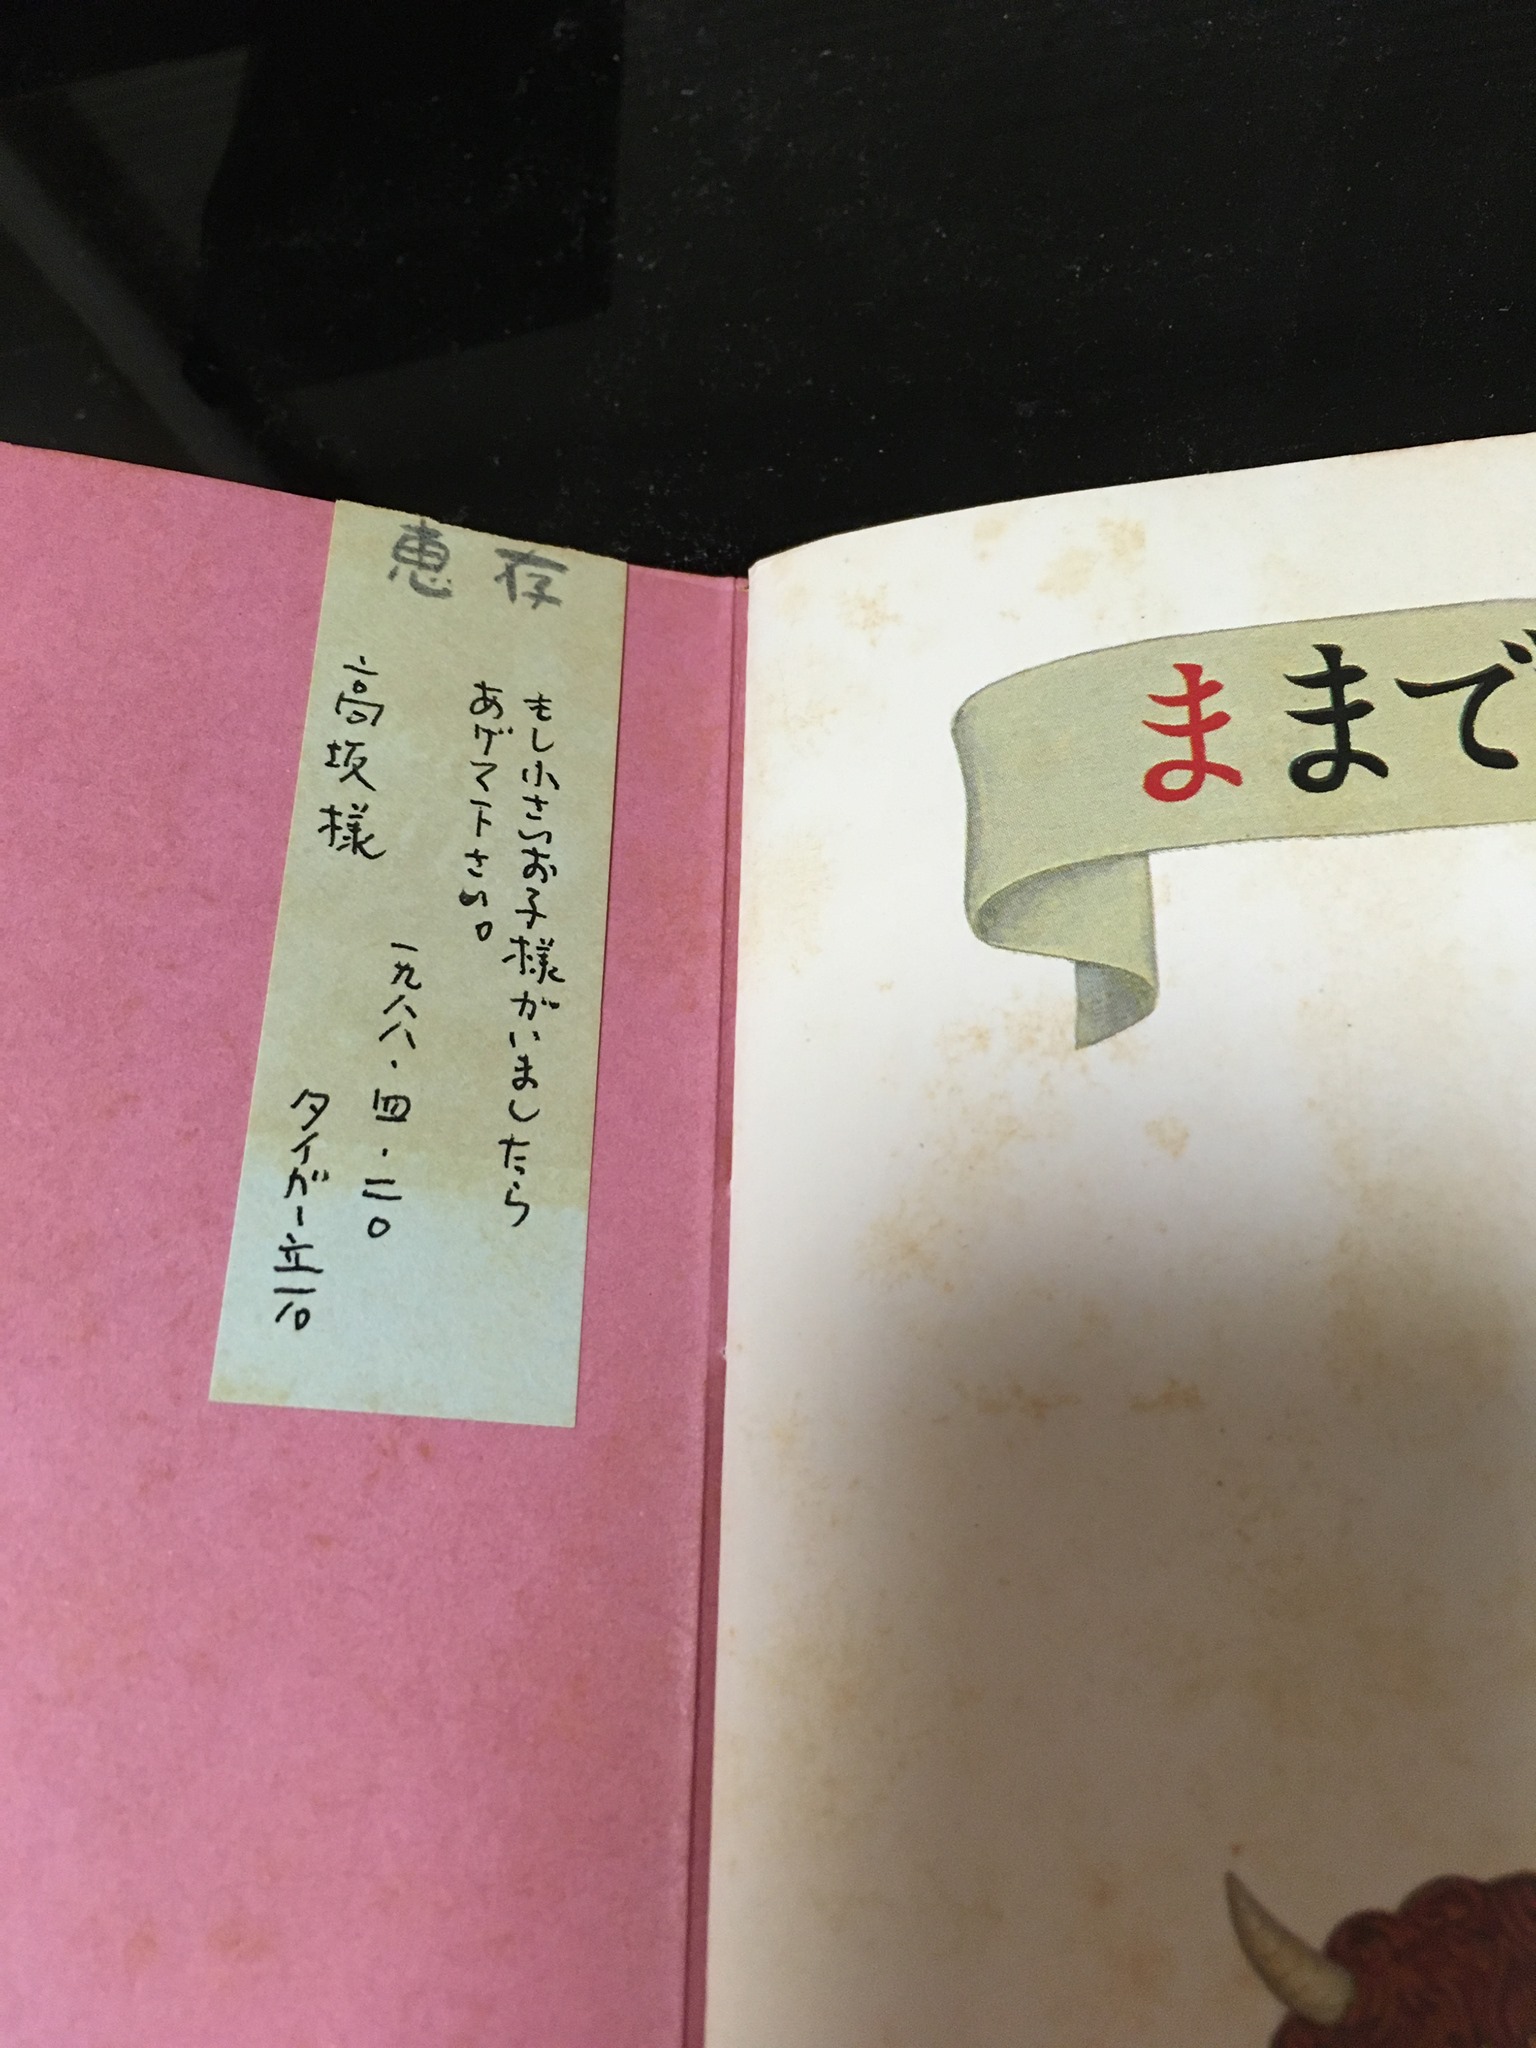 恵存
もし小さいお子様がいましたら
あげて下さい。
一九八八・四・二〇
高坂様
タイガー立石
ままで